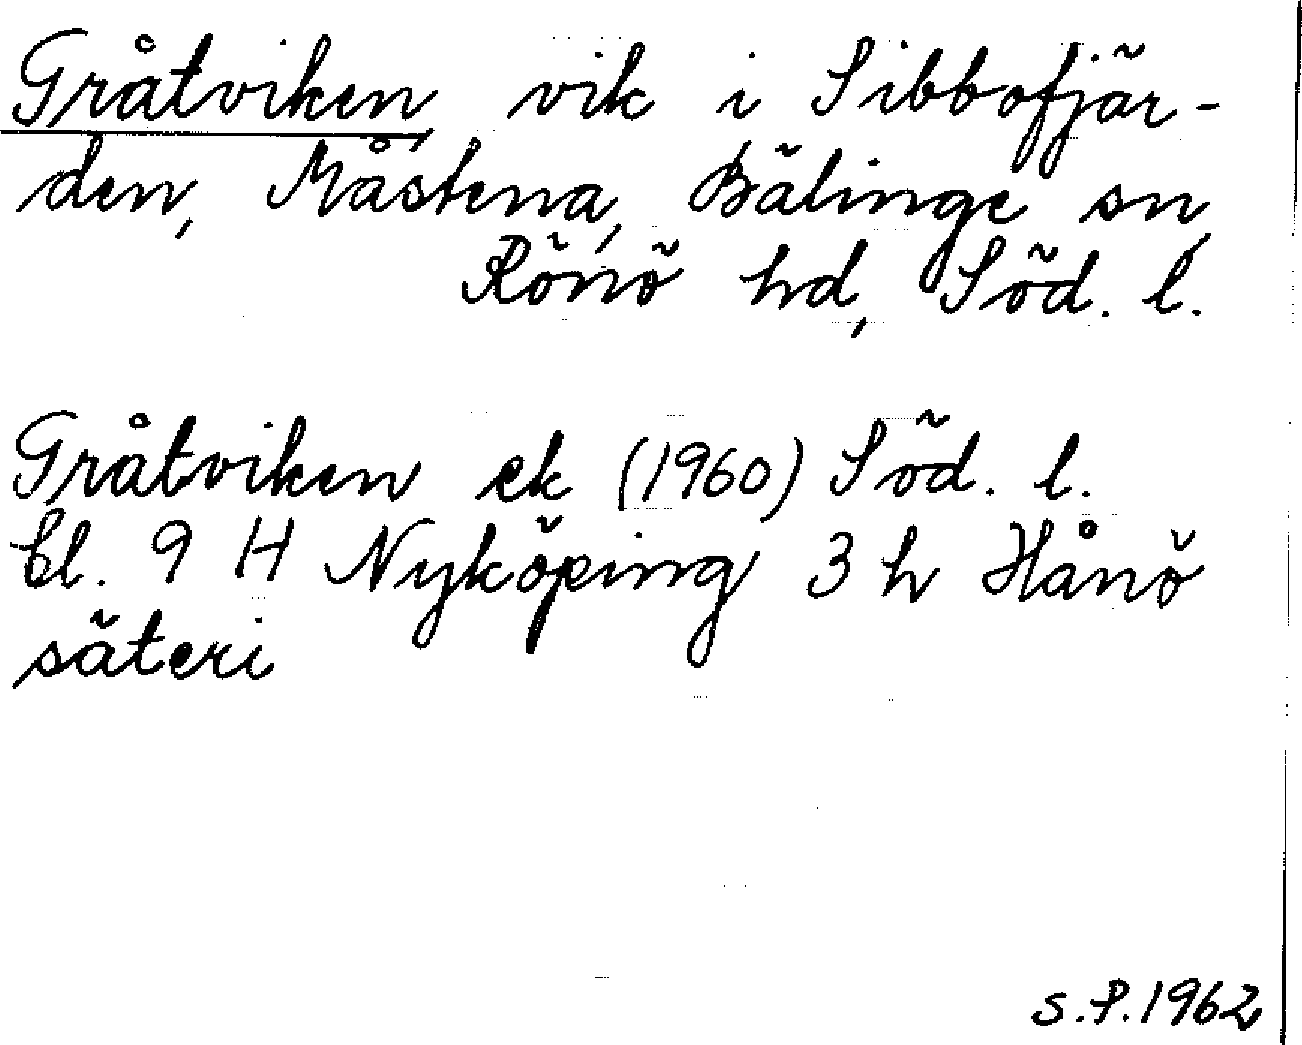 Gråtviken, vik i Sibbofjär-
den, Måstena, Bälinge sn,
Rönö hd, Söd. l.
Gråtviken ek (1960) Söd. l.
bl. 9 H Nyköping 3 h Hånö
säteri
S.P. 1962